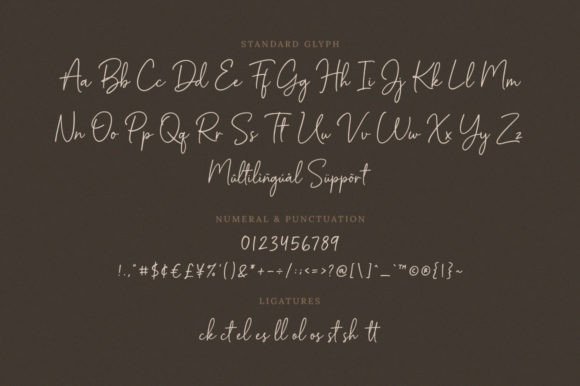 STANDARD GLYPH
Aa Bb Cc Dd Ee Ff Gg Hh Ii Jj Kk Ll Mm
Nn Oo Pp Qq Rr Ss Tt Uu Vv Ww Xx Yy Zz
Múltilíñgúål Süppört
NUMERAL & PUNCTUATION
0123456789
!.,"#$¢€£¥%'()&*+-÷/:;<=>?@[\]^_`™©®{|}~
LIGATURES
ck ct el es ll ol os st sh tt